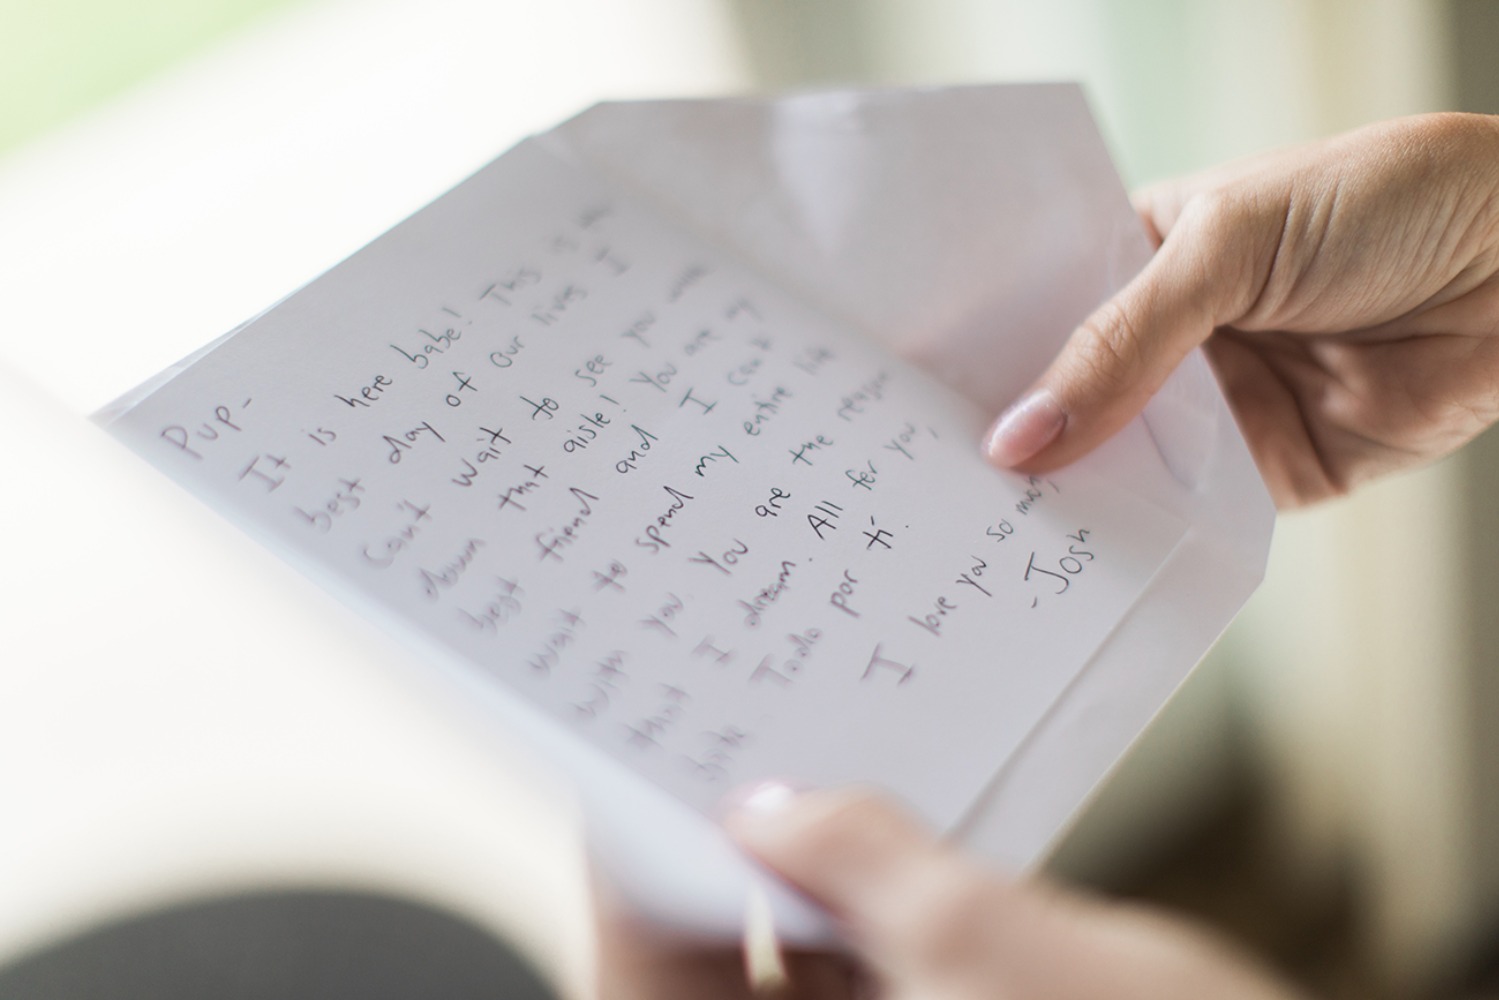 Pup-
It is here babe! This is the
best day of our lives I
Can't wait to see you walk
down that aisle! You are my
best friend and I can't
wait to spend my entire life
with you. You are the reason
that I dream. All for you,
Todo por tí.
I love you so much
-Josh